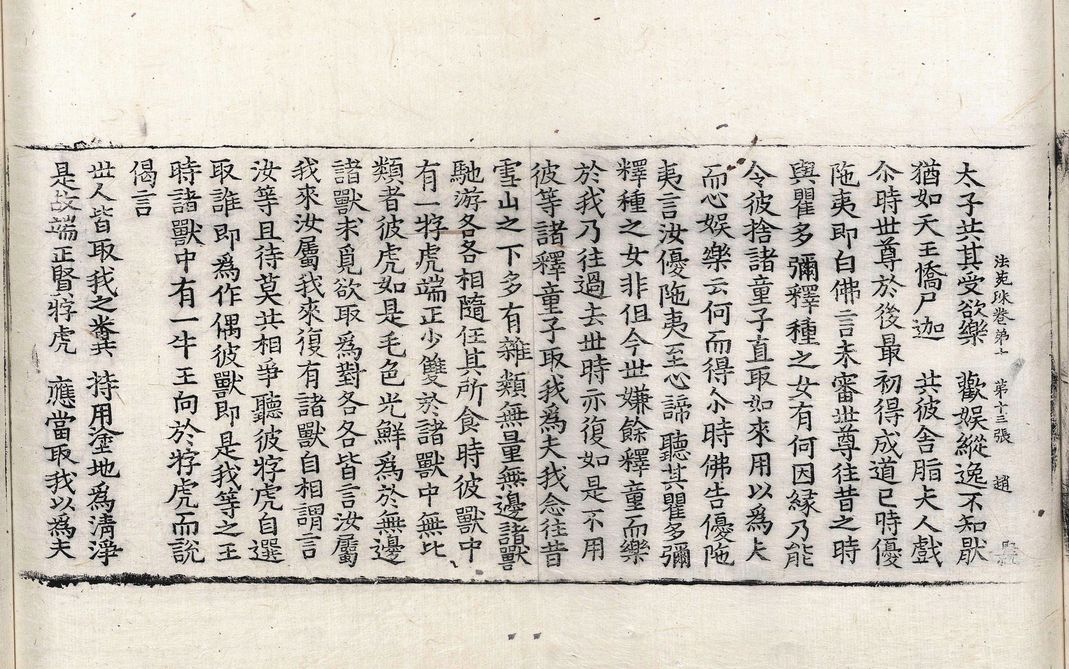 法苑珠卷第十 第十三張 趙
太子共其受欲樂 歡娛縱逸不知猒
猶如天王憍尸迦 共彼舍脂夫人戲
尒時世尊於後最初得成道已時優
陁夷即白佛言未審世尊往昔之時
與瞿多彌釋種之女有何因緣乃能
令彼捨諸童子直取如來用以為夫
而心娛樂云何而得尒時佛告優陁
夷言汝優陁夷至心諦聽其瞿多彌
釋種之女非但今世嫌餘釋童而樂
於我乃往過去世時亦復如是不用
彼等諸釋童子取我為夫我念往昔
雪山之下多有雜類無量無邊諸獸
馳游各各相隨任其所食時彼獸中
有一牸虎端正少雙於諸獸中無比
類者彼虎如是毛色光鮮為於無邊
諸獸求覓欲取為對各各皆言汝屬
我來汝屬我來復有諸獸自相謂言
汝等且待莫共相爭聽彼牸虎自選
取誰即為作偶彼獸即是我等之王
時諸獸中有一牛王向於牸虎而說
偈言
世人皆取我之糞 持用塗地為清淨
是故端正賢牸虎 應當取我以為夫